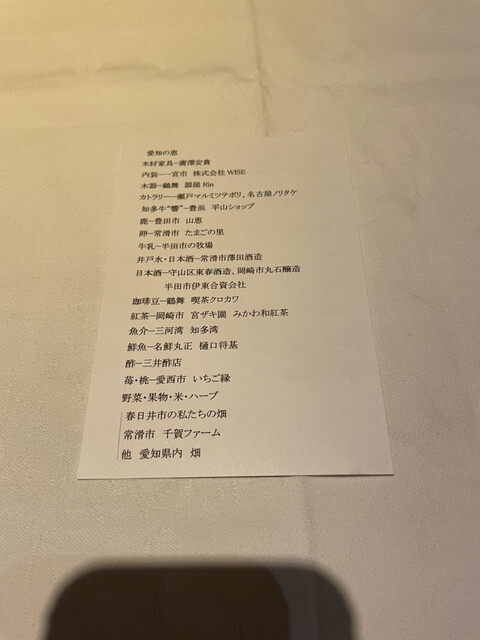 愛知の恵
木材家具ー廣澤安貴
内装ー一宮市 株式会社WISE
木器ー鶴舞 器屋Rin
カトラリーー瀬戸マルミツテポリ、名古屋ノリタケ
知多牛"響"ー豊浜 平山ショップ
鹿ー豊田市 山恵
卵ー常滑市 たまごの里
牛乳ー半田市の牧場
井戸水・日本酒ー常滑市澤田酒造
日本酒ー守山区東春酒造、岡崎市丸石醸造
半田市伊東合資会社
珈琲豆ー鶴舞 喫茶クロカワ
紅茶ー岡崎市 宮ザキ園 みかわ和紅茶
魚介ー三河湾 知多湾
鮮魚ー名鮮丸正 樋口将基
酢ー三井酢店
苺・桃ー愛西市 いちご縁
野菜・果物・米・ハーブ
春日井市の私たちの畑
常滑市 千賀ファーム
他 愛知県内 畑